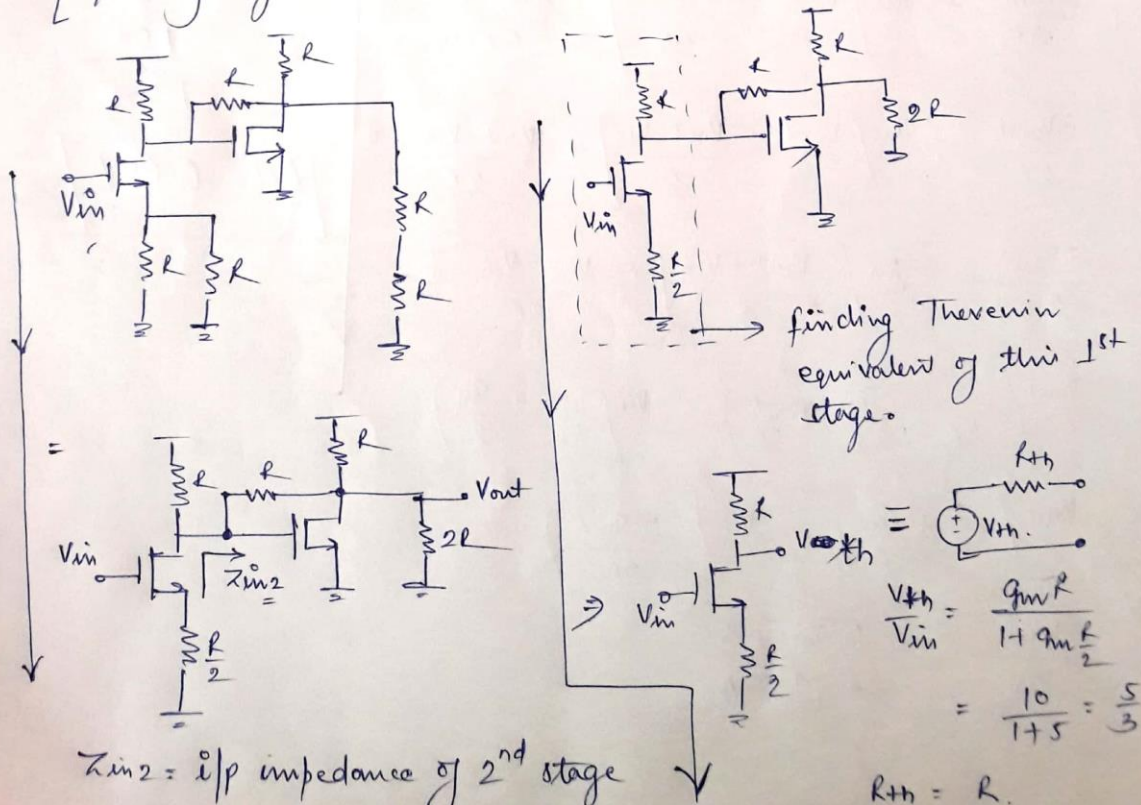 R
R
R
Vin
R
R
R
R
=
R
R
Vout
Vin
Zin2
=
2R
R/2
Zin2 = i/p impedance of 2nd stage
R
R
R
2R
Vin
R/2
finding Thevenin
equivalent of this 1st
stage.
R
Vth
Vin
R/2
≡
Rth
+
Vth.
Vth/Vin = gmR / 1+ gm R/2
= 10 / 1+5 = 5/3
Rth = R